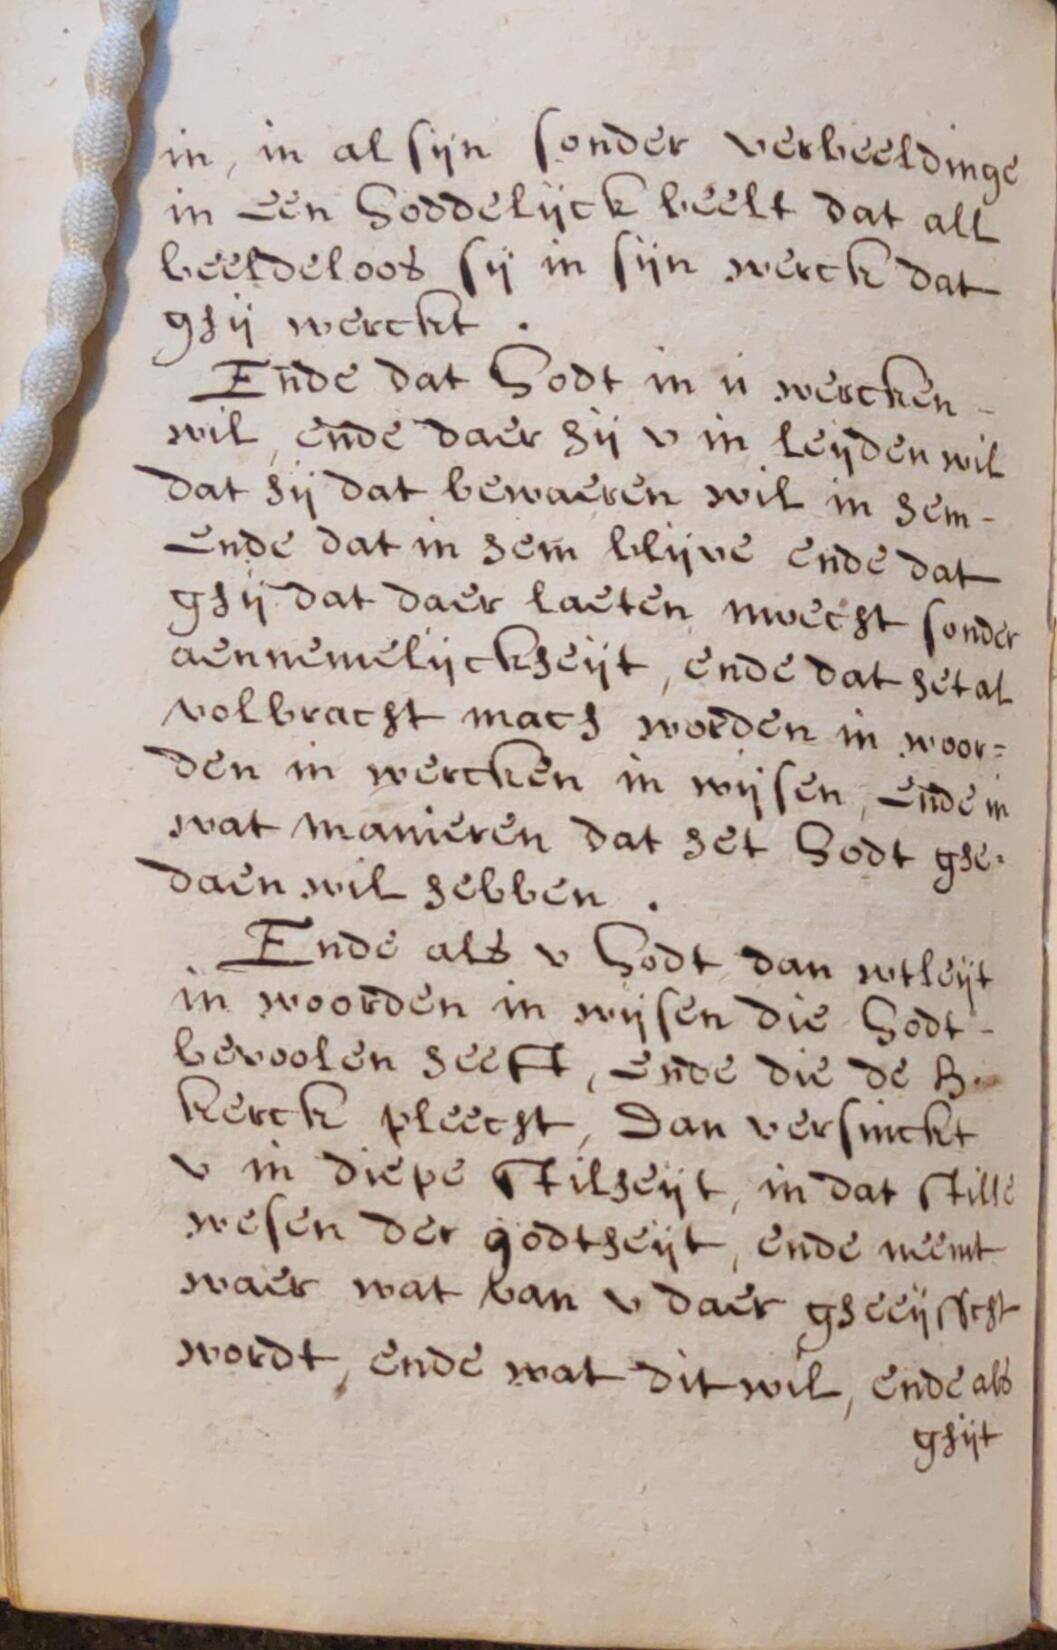 in, in al sijn sonder verbeeldinge
in een Goddelijck beelt dat all
beeldeloos sij in sijn werck dat
ghij werckt .
Ende dat Godt in u wercken -
wil, ende daer hij v in leijden wil
dat hij dat bewaeren wil in hem -
Ende dat in hem blijve ende dat
ghij dat daer laeten mœcht sonder
aennemelijckheijt, ende dat het al
volbracht mach worden in woor=
den in wercken in wijsen, Ende in
wat manieren dat het Godt ghe=
daen wil hebben .
Ende als v Godt dan wtleijt
in woorden in wijsen die Godt -
bevoolen heeft, Ende die de H.
kerck pleecht, Dan versinckt
v in diepe stilheijt, in dat stille
wesen der godtheijt, ende neemt
waer wat van v daer gheeijsscht
wordt, ende wat dit wil, ende als
ghijt